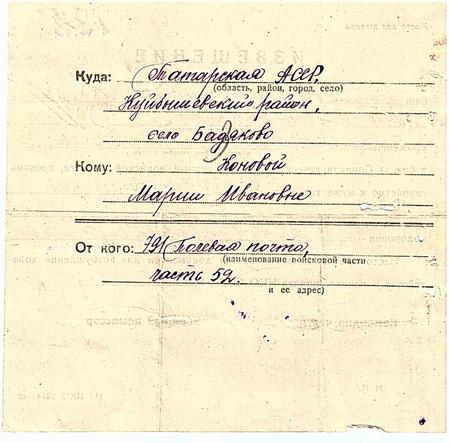 Куда: Татарская АССР,
(область, район, город, село)
Куйбышевский район,
село Бадяково
Кому: Коновой
Марии Ивановне
От кого: 791 Полевая почта,
(наименование войсковой части
часть 52.
и ее адрес)